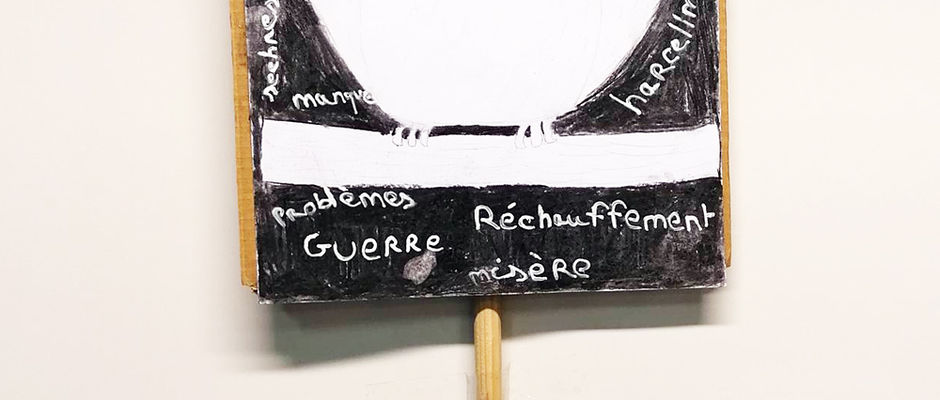 manque
problèmes
Réchauffement
GUERRE
misère